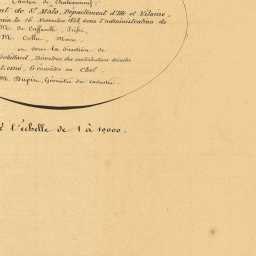 Canton de Chateauneuf,
nt de St Malo, Département d'Ille et Vilaine,
le 16 Novembre 1828 sous l'administration de
M. de Caffarelli, Préfet,
M. Collin, Maire
et sous la direction de
Directeur des contributions directes
Géomètre en Chef
M. Dupin, Géomètre du Cadastre.
à l'échelle de 1 à 10000.